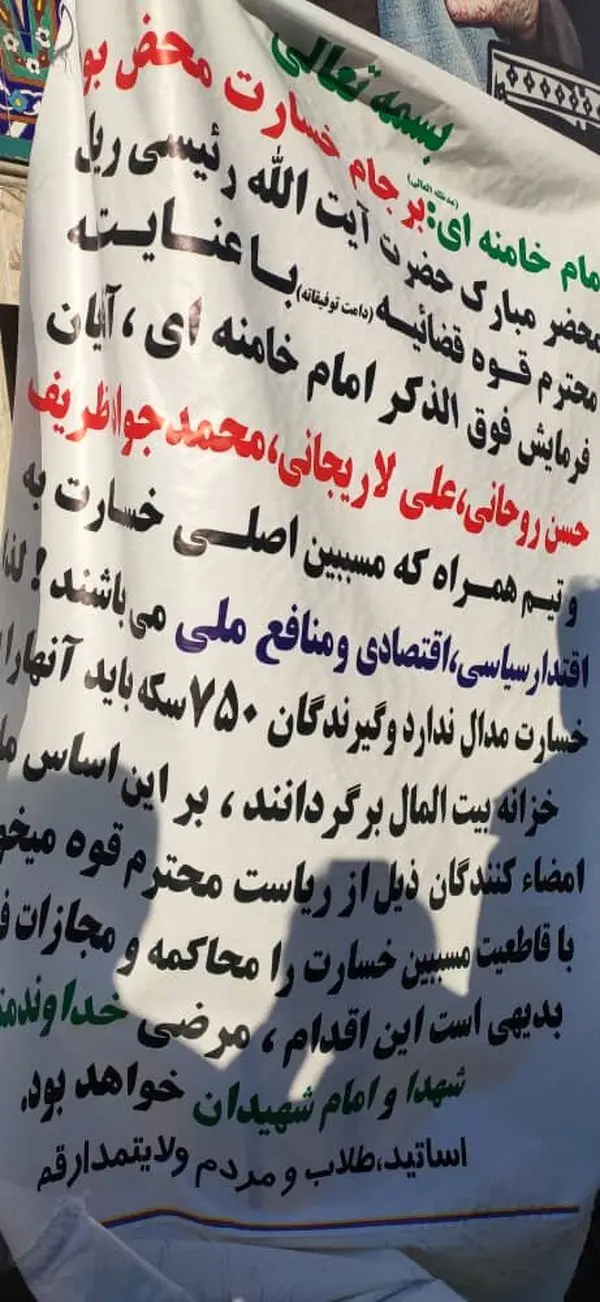 بسمه تعالی
امام خامنه ای:(مدظله العالی) برجام خسارت محض بو
محضر مبارک حضرت آیت الله رئیسی ریا
محترم قوه قضائیه (دامت توفیقاته) با عنایت به
فرمایش فوق الذکر امام خامنه ای ، آقایان
حسن روحانی،علی لاریجانی،محمدجوادظریف
و تیم همراه که مسببین اصلی خسارت به
اقتدارسیاسی،اقتصادی ومنافع ملی می باشند ! لذا
خسارت مدال ندارد وگیرندگان ۷۵۰ سکه باید آنهارا
خزانه بیت المال برگردانند ، بر این اساس ما
امضاء کنندگان ذیل از ریاست محترم قوه میخو
با قاطعیت مسببین خسارت را محاکمه و مجازات ف
بدیهی است این اقدام ، مرضی خداوندمت
شهدا و امام شهیدان خواهد بود.
اساتید،طلاب و مردم ولایتمدارقم